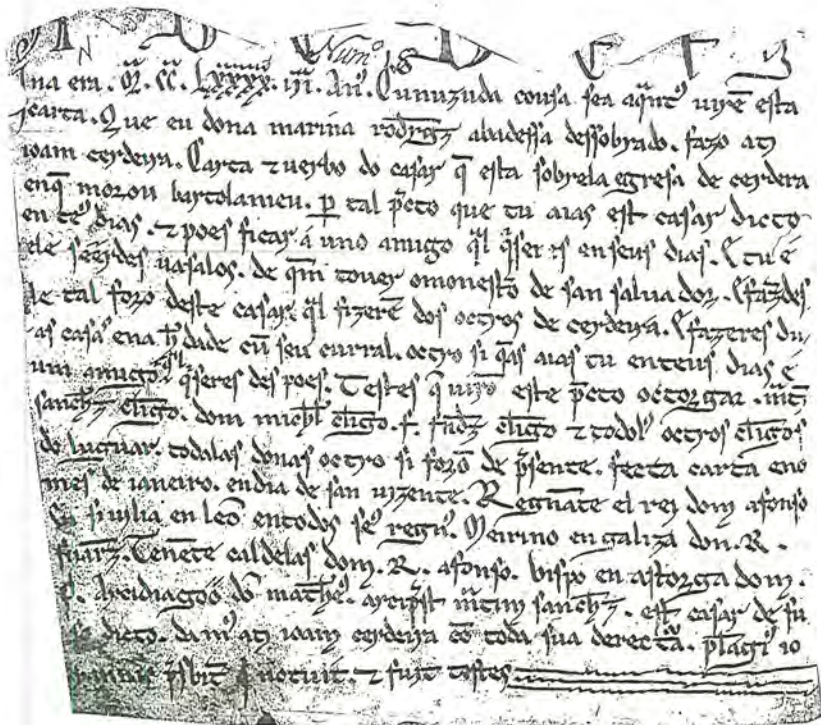 A B C D E F G
N Numº 18
Ina era. M. CC. Lxxxx. iii. An. Cunuzuda cousa sea aqnt' uire esta
carta. Que eu dona marina rodrgz abadessa dessobrado. fazo a ti
ioam cerdeyra. Carta z uerbo do casar q esta sobrela egresa de cerdera
enq morou bartolameu. p tal pcto que tu aias est casar dicto
en te' dias. z poes ficar á uno amigo ql qseres en seus dias. E tu é
ele seerdes uasalos. de qm touer o monesto de san saluador. E fazdes
le tal foro deste casar. ql fizere dos octros de cerdeyra. E fazeres du
as casas ena hdade cu seu curral. octro si qas aias tu en teus dias é
um amigo ql qseres des poes. Testes q uiro este pcto octorgar. mti
sanchz cligo. dom michl cligo. f. fndz cligo z todol' octros cligos
de luguar. todalas donas octro si foro de psente. fecta carta eno
mes de ianeiro. en dia de san uizente. Regnate el rei dom afonso
siuilia en leo en todos se' regn'. Meirino en galiza don. R.
suarz. Tenete caldelas dom. R. afonso. bispo en astorga dom.
Arcidiagoo do mathe'. arcipst mtin sanchz. est casar de su
dicto. dam' a ti ioam cerdeyra co toda sua derectá.
psbit q notuit. z fuit testes